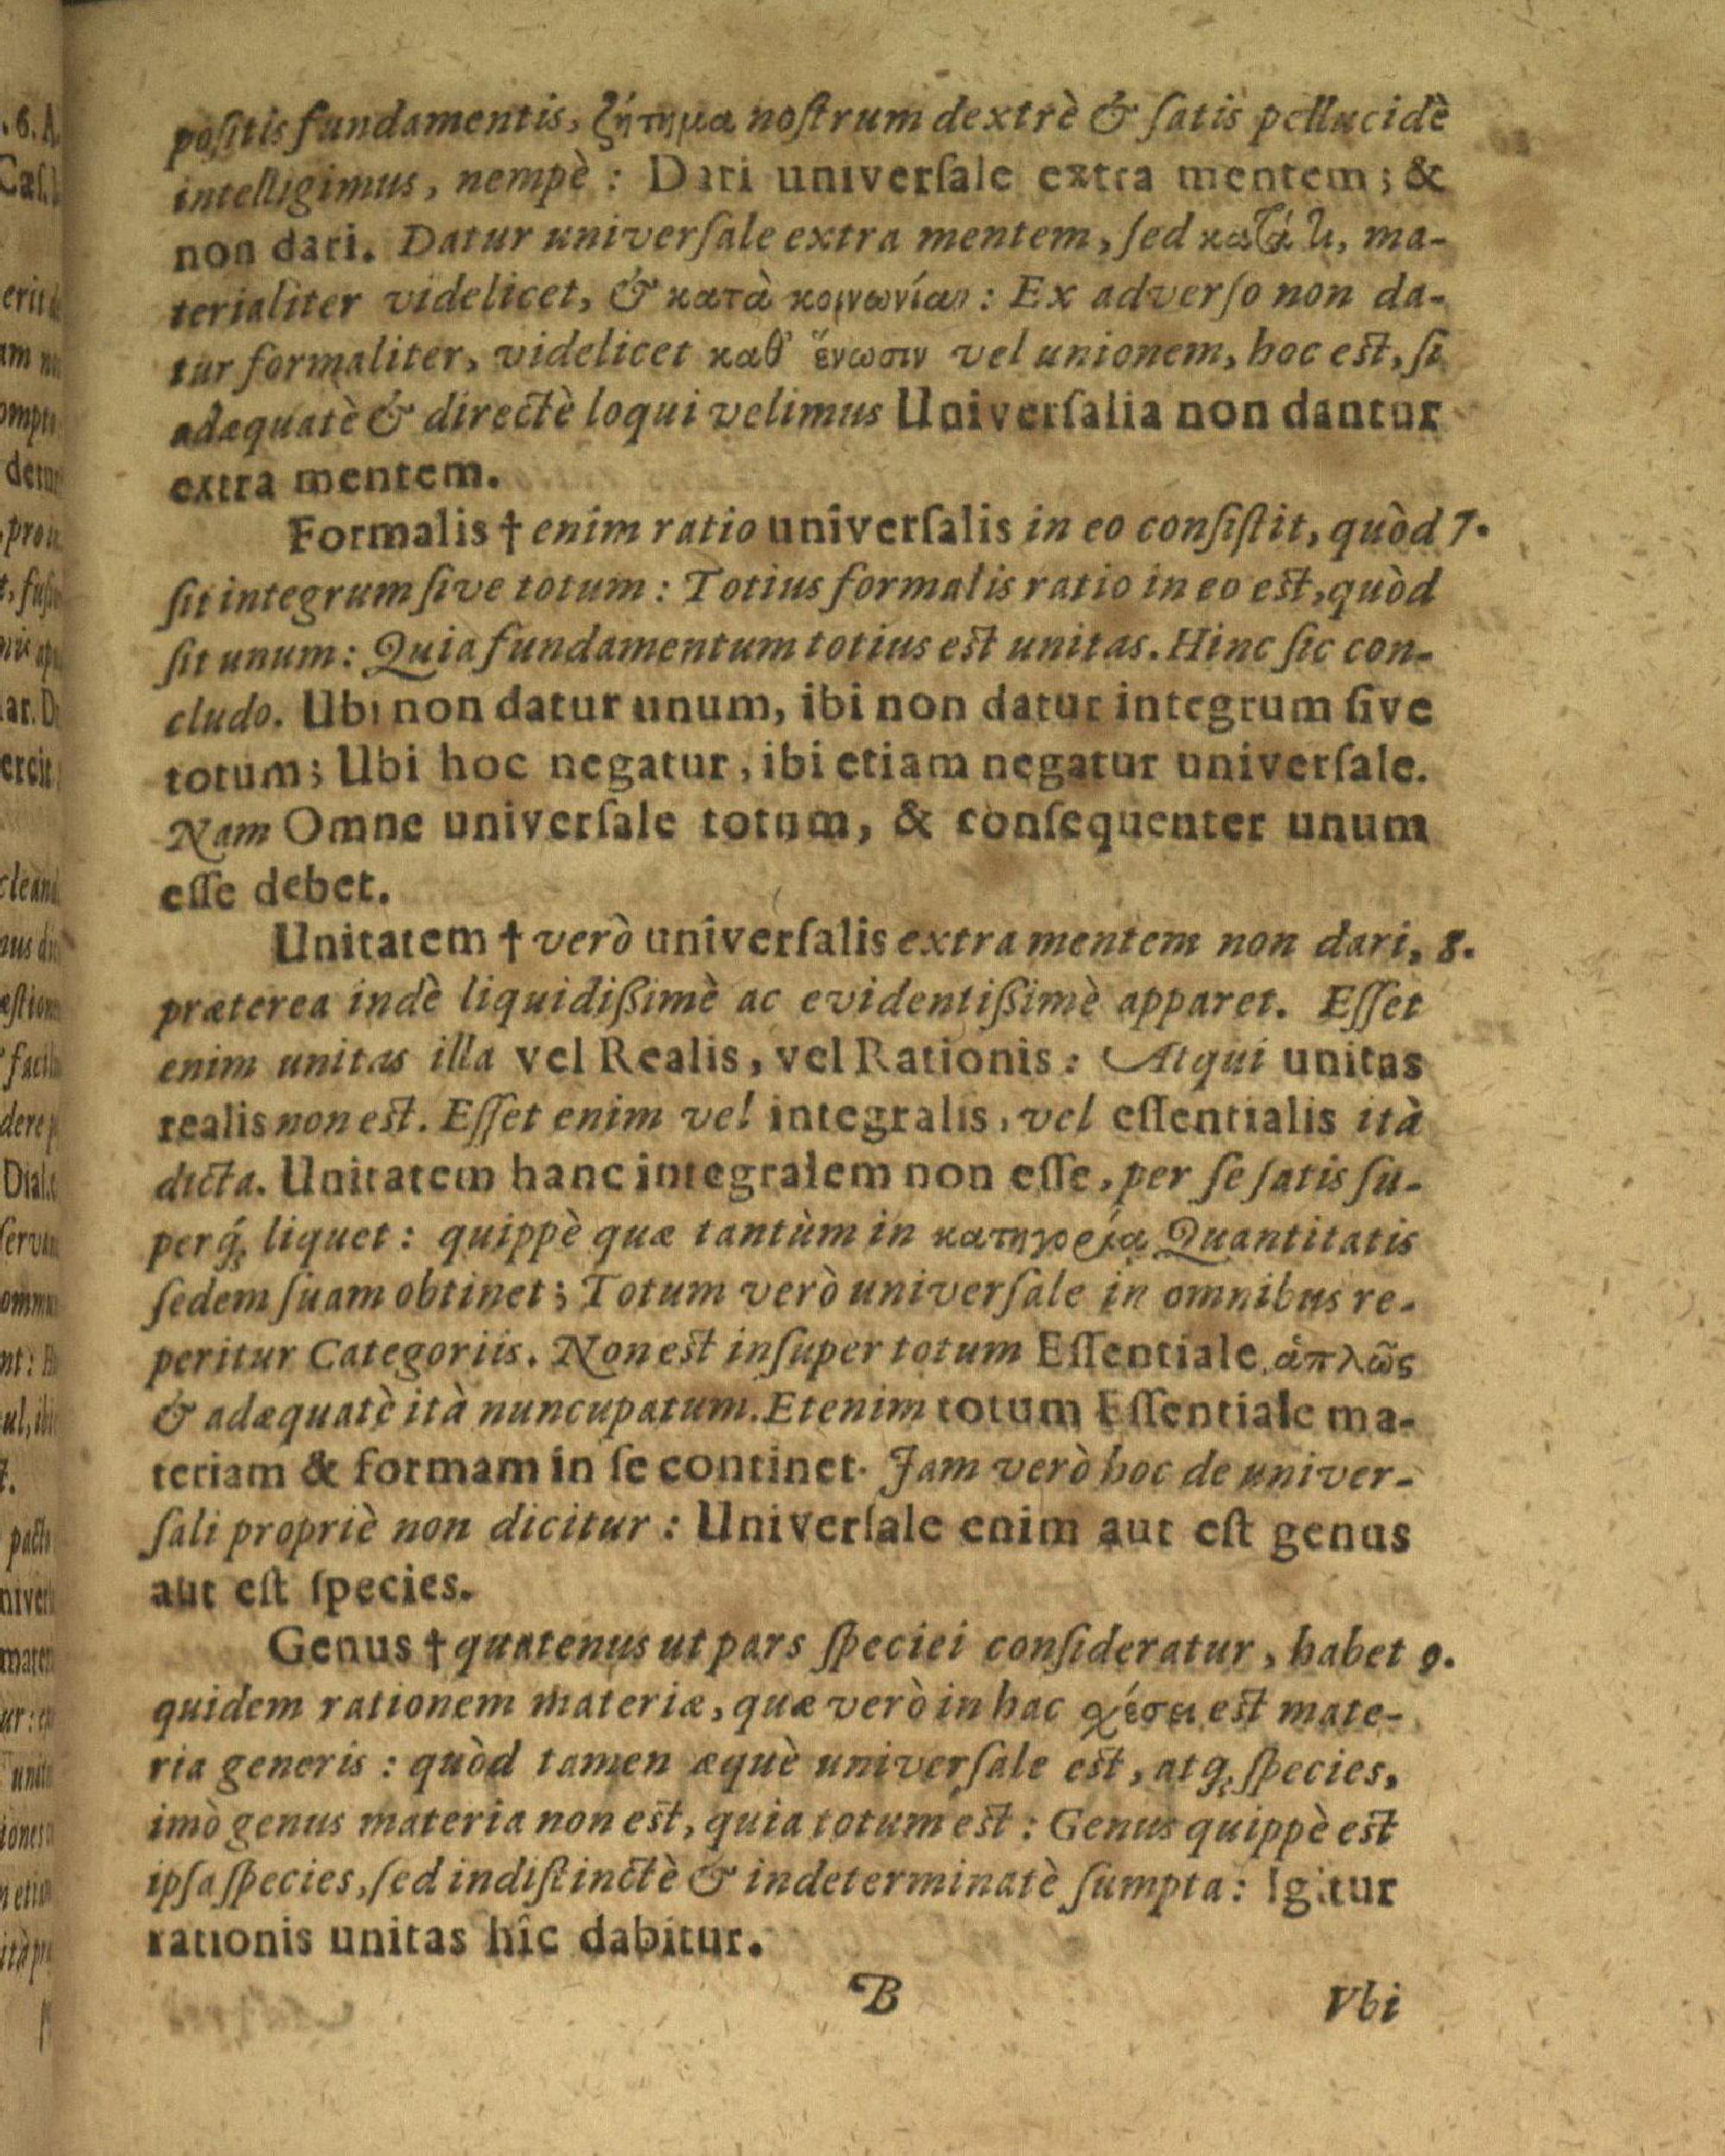 poſitis fundamentis, ζήτημα noſtrum dextrè & ſatis pellucidè
intelligimus, nempè : Dari univerſale extra mentem ; &
non dari. Datur univerſale extra mentem, ſed κατά τι, ma-
terialiter videlicet, & κατὰ κοινωνίαν : Ex adverſo non da-
tur formaliter, videlicet καθ᾽ ἕνωσιν vel unionem, hoc eſt, ſi
adæquatè & directè loqui velimus Univerſalia non dantur
extra mentem.
Formalis † enim ratio univerſalis in eo conſiſtit, quòd 7.
ſit integrum ſive totum : Totius formalis ratio in eo eſt, quòd
ſit unum : Quia fundamentum totius eſt unitas. Hinc ſic con-
cludo. Ubi non datur unum, ibi non datur integrum ſive
totum ; Ubi hoc negatur, ibi etiam negatur univerſale.
Nam Omne univerſale totum, & conſequenter unum
eſſe debet.
Unitatem † verò univerſalis extra mentem non dari, 8.
præterea indè liquidißimè ac evidentißimè apparet. Eſſet
enim unitas illa vel Realis, vel Rationis : Atqui unitas
realis non eſt. Eſſet enim vel integralis, vel eſſentialis ità
dicta. Unitatem hanc integralem non eſſe, per ſe ſatis ſu-
perq́; liquet : quippè quæ tantùm in κατηγορίᾳ Quantitatis
ſedem ſuam obtinet ; Totum verò univerſale in omnibus re-
peritur Categoriis. Non eſt inſuper totum Eſſentiale ἁπλῶς
& adæquatè ità nuncupatum. Etenim totum Eſſentiale ma-
teriam & formam in ſe continet. Jam verò hoc de univer-
ſali propriè non dicitur : Univerſale enim aut eſt genus
aut eſt ſpecies.
Genus † quatenus ut pars ſpeciei conſideratur, habet 9.
quidem rationem materiæ, quæ verò in hac σχέσει eſt mate-
ria generis : quòd tamen æquè univerſale eſt, atq; ſpecies,
imò genus materia non eſt, quia totum eſt : Genus quippè eſt
ipſa ſpecies, ſed indiſtinctè & indeterminatè ſumpta : Igitur
rationis unitas hîc dabitur.
B Vbi